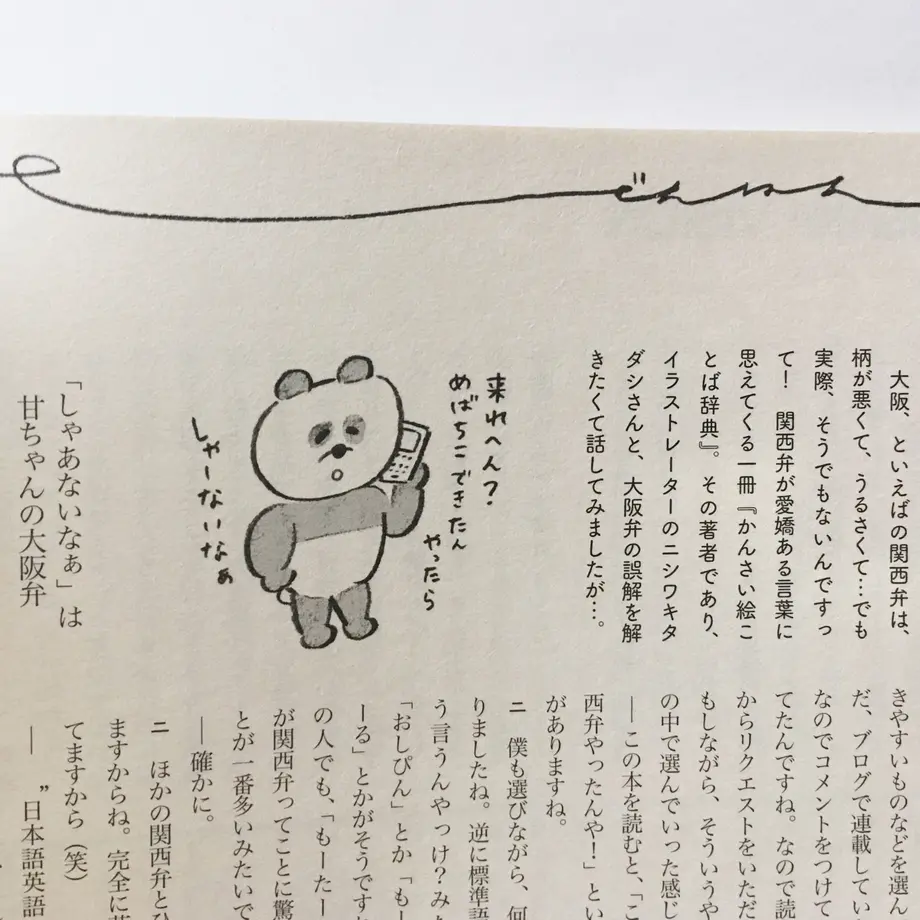 大阪、といえばの関西弁は、
柄が悪くて、うるさくて…でも
実際、そうでもないんですっ
て! 関西弁が愛嬌ある言葉に
思えてくる一冊『かんさい絵こ
とば辞典』。その著者であり、
イラストレーターのニシワキタ
ダシさんと、大阪弁の誤解を解
きたくて話してみましたが…。
来れへん?
めばちこできたん
やったら
しゃーないなぁ
「しゃあないなぁ」は
甘ちゃんの大阪弁
きやすいものなどを選ん
だ、ブログで連載してい
なのでコメントをつけて
てたんですね。なので読
からリクエストをいただ
もしながら、そういうや
の中で選んでいった感じ
―この本を読むと、「こ
西弁やったんや!」とい
がありますね。
ニ 僕も選びながら、何
りましたね。逆に標準語
う言うんやっけ?みた
「おしぴん」とか「もー
ーる」とかがそうです
の人でも、「もーたー
が関西弁ってことに驚
とが一番多いみたいで
―確かに。
ニ ほかの関西弁とひ
ますからね。完全に
てますから(笑)
― ”日本語英語